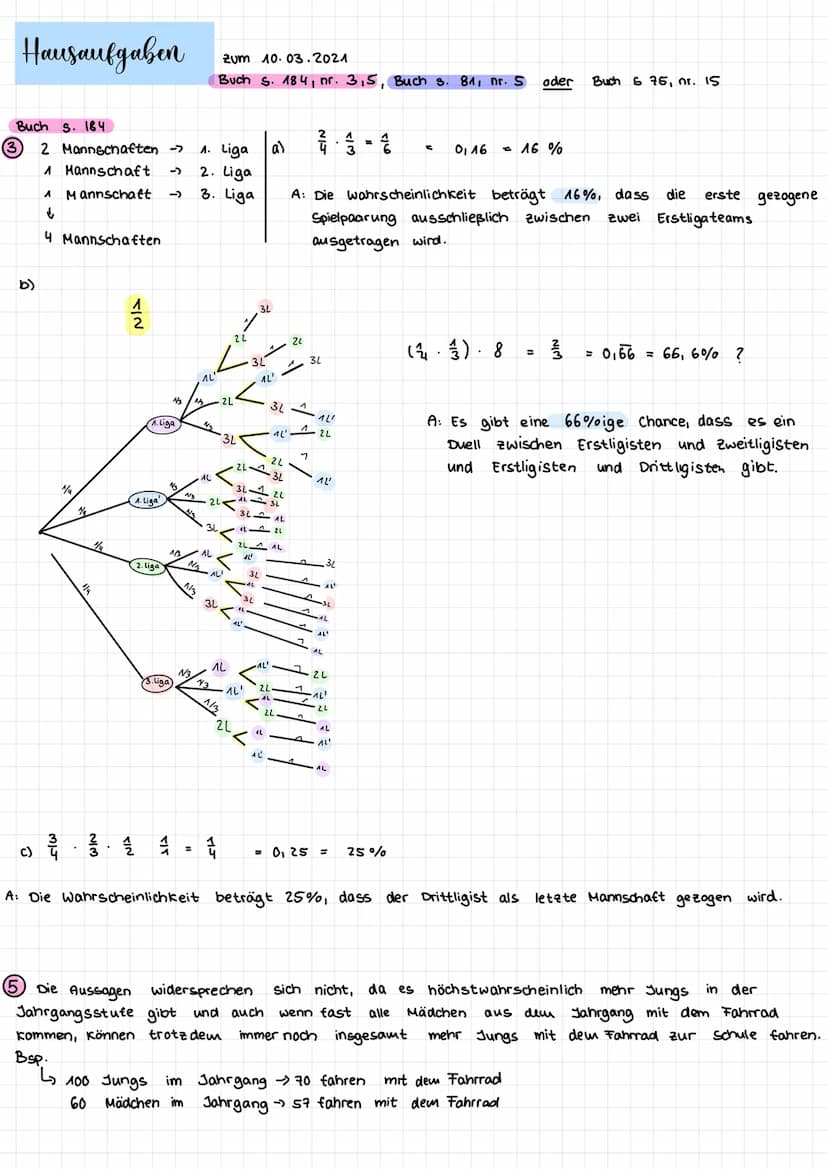 Hausaufgaben
zum 10.03.2021
Buch S. 184, nr. 3,5, Buch S. 81, nr. 5 oder Buch S 75, nr. 15
Buch S. 184
③ 2 Mannschaften → 1. Liga
1 Mannschaft → 2. Liga
1 Mannschaft → 3. Liga
↓
4 Mannschaften
a) 2/4 · 1/3 = 1/6 = 0,16 = 16 %
A: Die Wahrscheinlichkeit beträgt 16%, dass die erste gezogene
Spielpaarung ausschließlich zwischen zwei Erstligateams
ausgetragen wird.
b)
1/2
1. Liga
1. Liga'
2. Liga
3. Liga
(1/4 · 1/3) · 8 = 2/3 = 0,66 = 66,6% ?
A: Es gibt eine 66%oige Chance, dass es ein
Duell zwischen Erstligisten und Zweitligisten
und Erstligisten und Drittligisten gibt.
c) 3/4 · 2/3 · 1/2 1/1 = 1/4 = 0,25 = 25%
A: Die Wahrscheinlichkeit beträgt 25%, dass der Drittligist als letzte Mannschaft gezogen wird.
⑤ Die Aussagen widersprechen sich nicht, da es höchstwahrscheinlich mehr Jungs in der
Jahrgangsstufe gibt und auch wenn fast alle Mädchen aus dem Jahrgang mit dem Fahrrad
kommen, können trotzdem immer noch insgesamt mehr Jungs mit dem Fahrrad zur Schule fahren.
Bsp.
↳ 100 Jungs im Jahrgang → 70 fahren mit dem Fahrrad
60 Mädchen im Jahrgang → 57 fahren mit dem Fahrrad